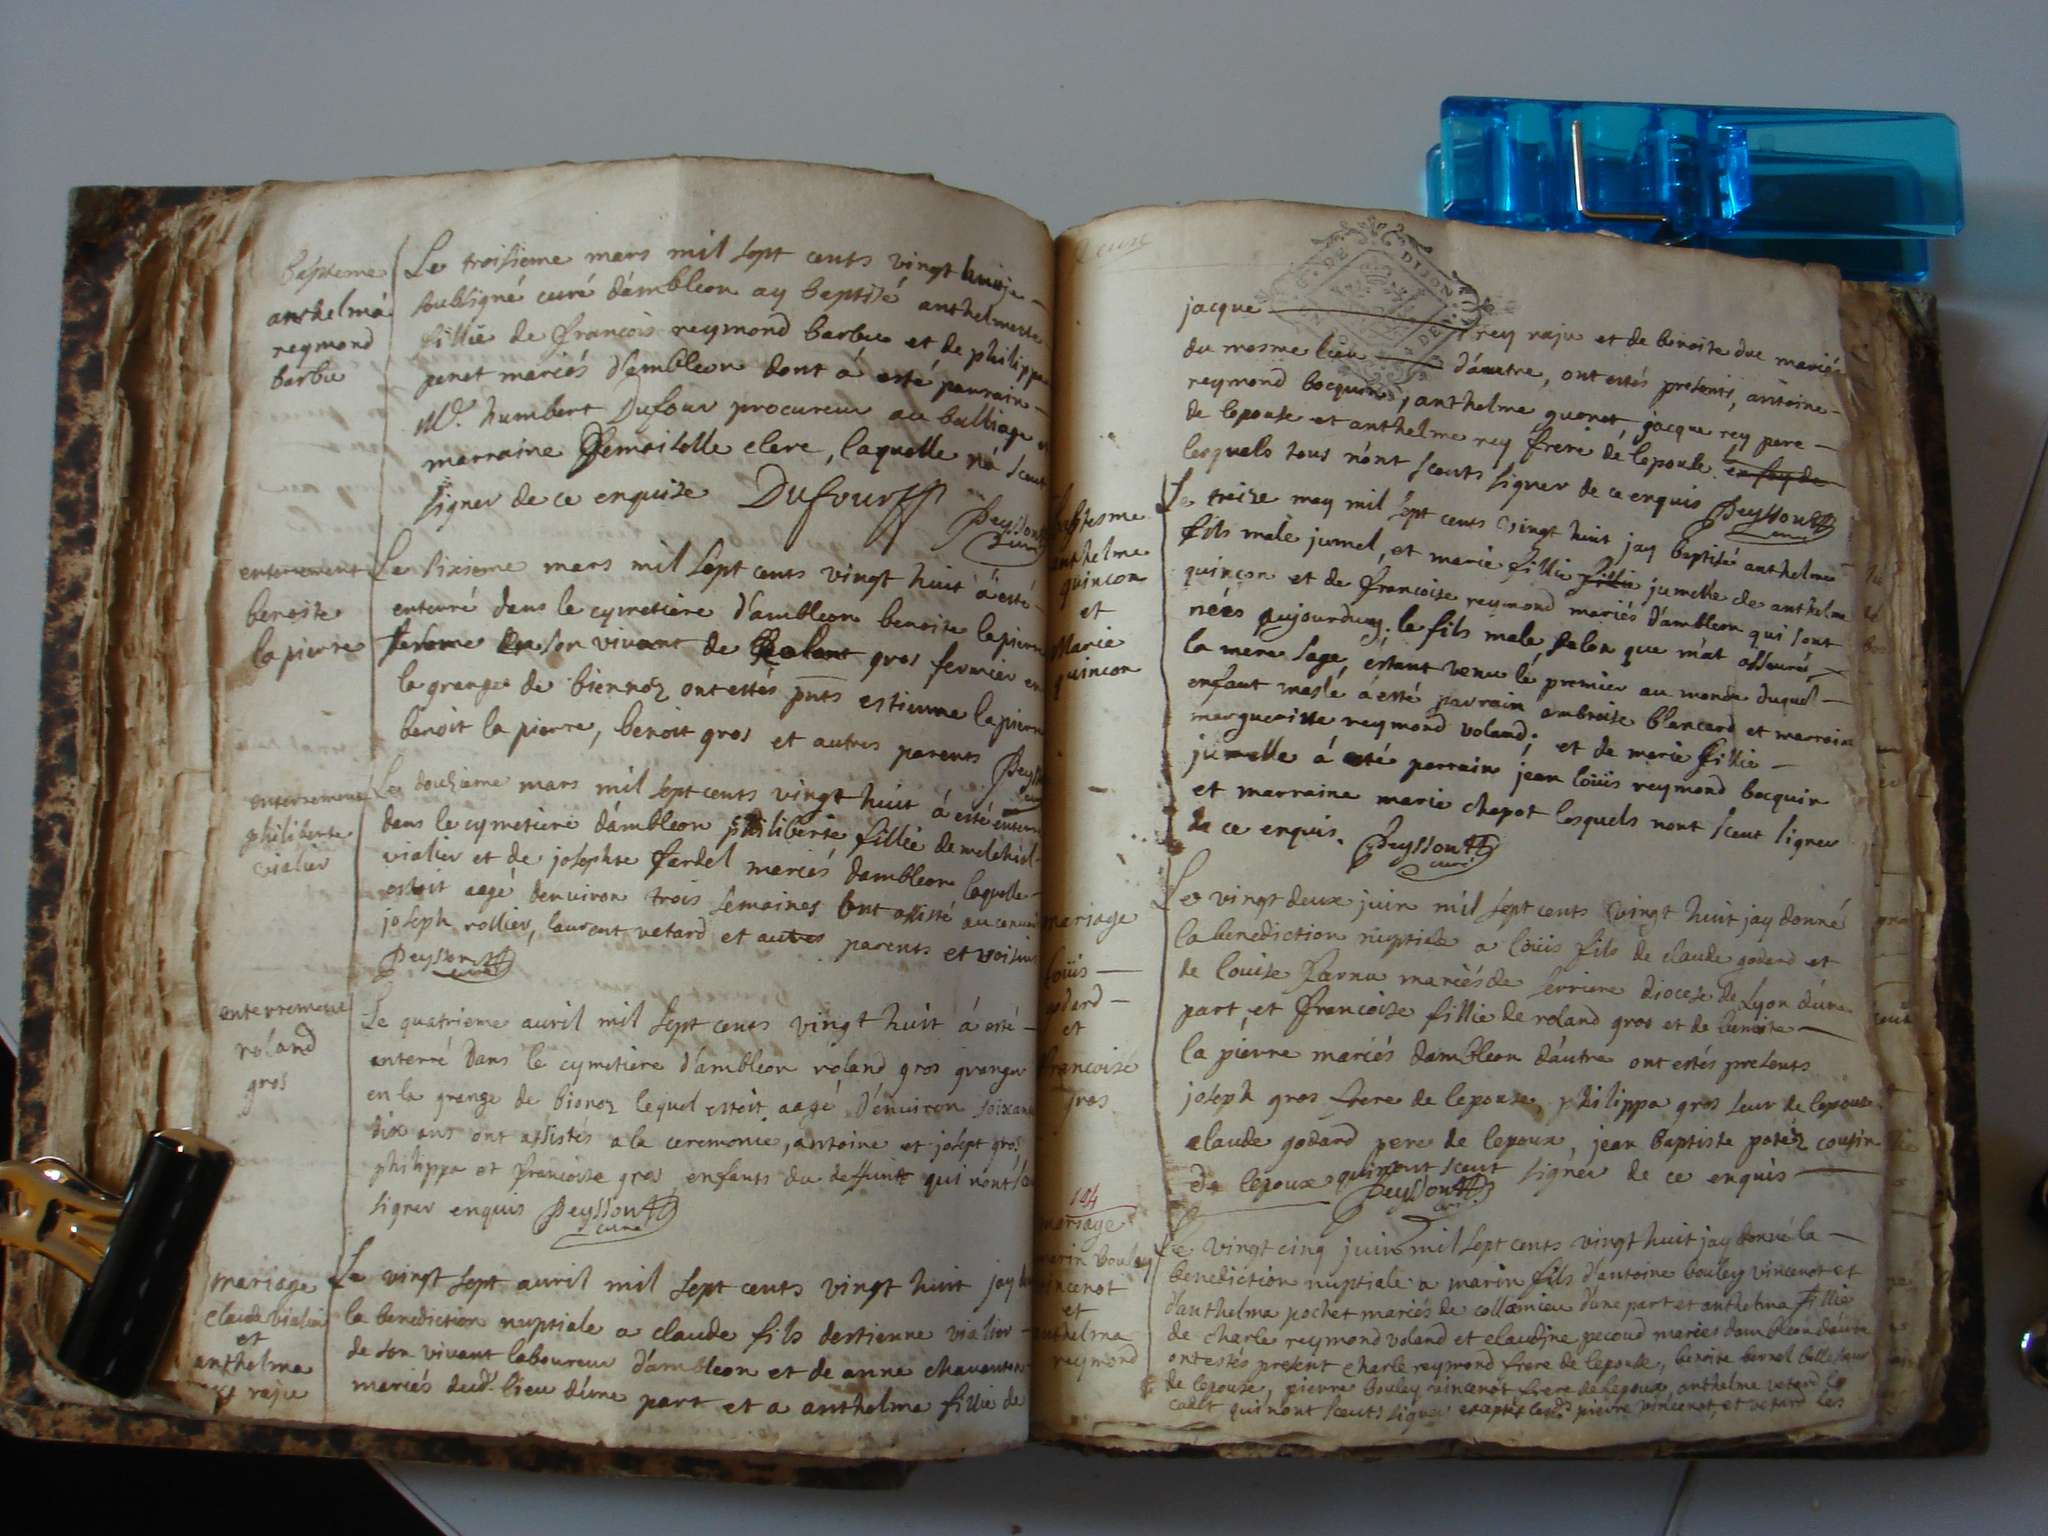 bapteme
anthelma
reymond
barbu
Le troisieme mars mil sept cents vingt huit je
soubsigné curé d'ambleon ay baptisé anthelmette
fillie de francois reymond barbu et de philippa
penet mariés d'ambleon dont à esté parrain
Mr. humbert Dufour procureur au balliage et
marraine Demoiselle clere, laquelle na sceut
signer de ce enquise Dufour
Deysson
curé
enterrement
benoite
la pierre
Le sixieme mars mil sept cents vingt huit à esté
enterré dans le cymetiere d'ambleon benoite lapierre
femme en son vivant de Rolant gros fermier en
la grange de biennoz ont estés pnts estienne lapierre
benoit la pierre, benoit gros et autres parents Deysson
enterrement
philiberte
vialier
Le douzieme mars mil sept cents vingt huit à esté enterré
dans le cymetiere d'ambleon philiberte fillie de melchiol
vialier et de josephte fardel mariés dambleon laquelle
estoit aagé denviron trois semaines ont assisté au convoi
joseph rollier, laurent vetard et autres parents et voisins
Deysson
curé
enterrement
roland
gros
Le quatrieme auril mil sept cents vingt huit à esté
enterré dans le cymetiere d'ambleon roland gros granger
en la grange de bionoz lequel estoit aagé d'environ soixante
dix ans ont assistés a la ceremonie, antoine et josept gros
philippa et francoise gros enfants du deffunt qui nont sceu
signer enquis Deysson
curé
mariage
claude vialier
et
anthelma
rey raju
Le vingt sept auril mil sept cents vingt huit jay
la benediction nuptiale a claude fils destienne vialier
de son vivant laboureur d'ambleon et de anne chavanton
mariés dud. lieu d'une part et a anthelma fillie de
jacque rey raju et de benoite duc mariés
G. DE DIJON
du mesme lieu d'autre, ont estés presents, antoine
reymond bocquin, anthelme guenet, jacque rey pere
de lepouse et anthelme rey frere de lepouse en foy de
lesquels tous n'ont sceuts signer de ce enquis Deysson
curé
baptesme
anthelme
quincon
et
Marie
quincon
Le treize may mil sept cents vingt huit jay baptisé anthelme
fils male jumel, et marie fillie fillie jumelle de anthelme
quinçon et de francoise reymond mariés d'ambleon qui sont
néés aujourduy; le fils male, salon que m'at asseuré,
la mere sage, estant venu le premier au monde duquel
enfant maslé à esté parrain ambroise blancard et marraine
marguerite reymond voland; et de marie fillie
jumelle à esté parrain jean loüis reymond bocquin
et marraine marie chapot lesquels nont sceut signer
de ce enquis. Deysson
curé
mariage
loüis
godard
et
francoise
gros
Le vingt deux juin mil sept cents vingt huit jay donné
la benediction nuptiale a loüis fils de claude godard et
de louise farnu mariés de serriere diocese de Lyon d'une
part, et francoise fillie de roland gros et de benoite
la pierre mariés dambleon d'autre ont estés presents
joseph gros frere de lepouse, philippa gros seur de lepouse
claude godard pere de lepoux, jean baptiste potéz cousin
de lepoux qui nont sceut signer de ce enquis
Deysson
curé
104
mariage
marin bouley
vincenot
et
anthelma
reymond
Le vingt cinq juin mil sept cents vingt huit jay donné la
benediction nuptiale a marin fils d'antoine bouley vincenot et
d'anthelma pochet mariés de collomieu d'une part et anthelma fillie
de charle reymond voland et claudine pecoud mariés dambleon d'autre
ont estés present charle reymond frere de lepouse, benoite bernel belle seur
de lepouse, pierre bouley vincenot frere de lepoux, anthelme vetard
qui nont sceuts signer exceptés lesd. pierre vincenot, et vetard les